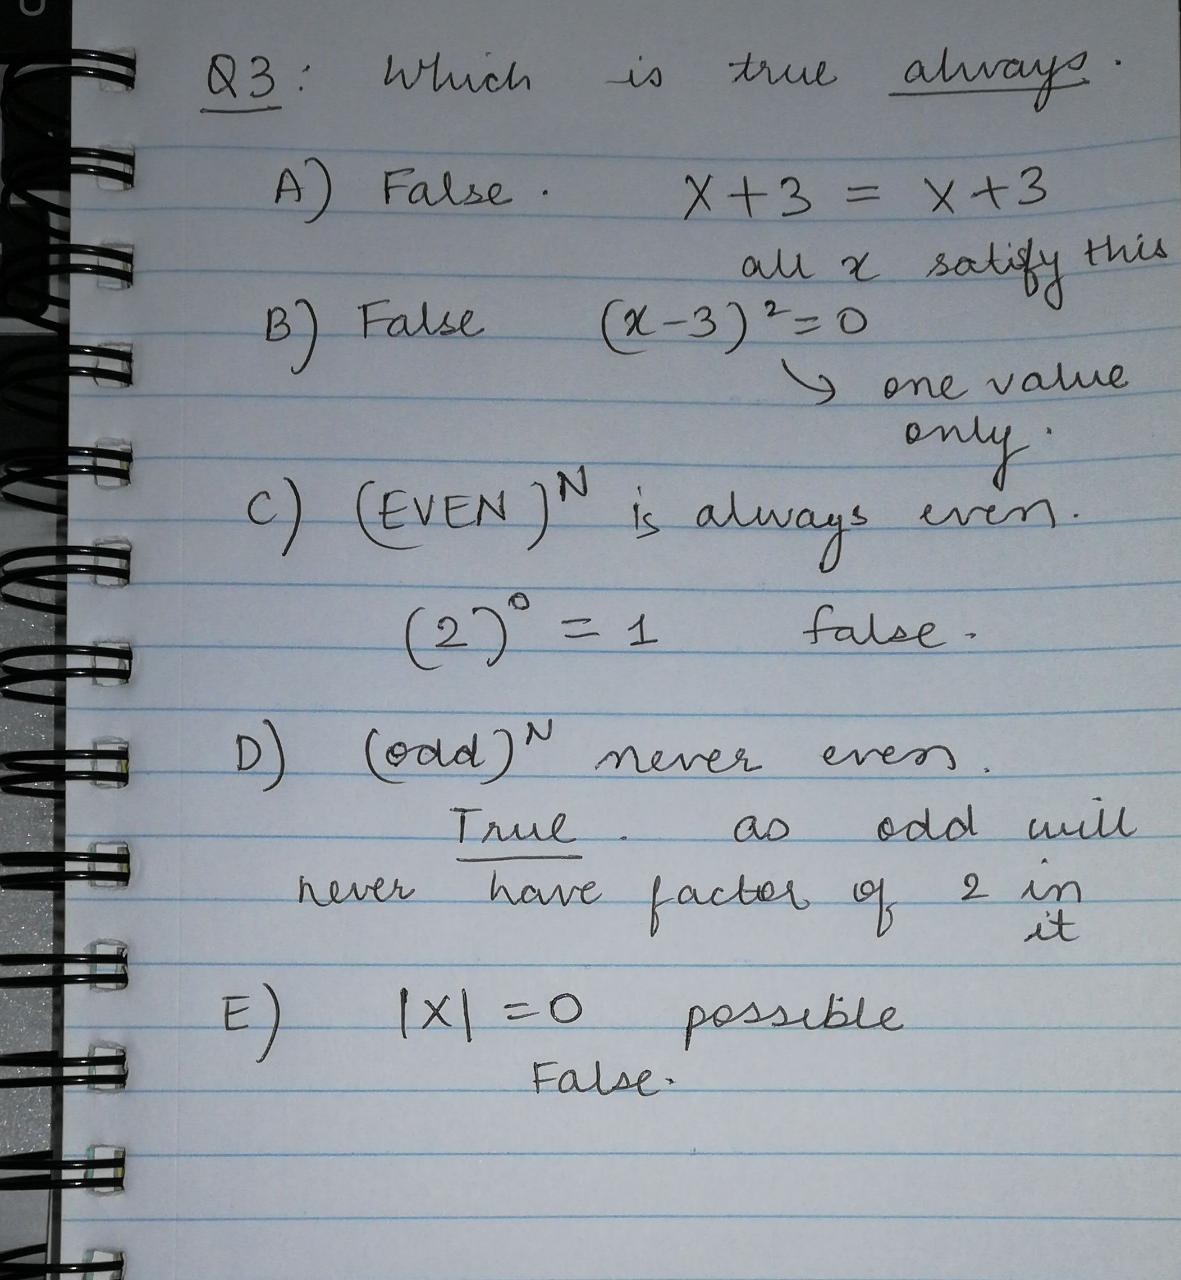 Q3: Which is true always.
A) False. X+3 = X+3
all x satify this
B) False (x-3)²=0
↘ one value
only.
C) (EVEN)ᴺ is always even.
(2)⁰ = 1 false.
D) (odd)ᴺ never even.
True. as odd will
never have factor of 2 in
it
E) |X| = 0 possible
False.